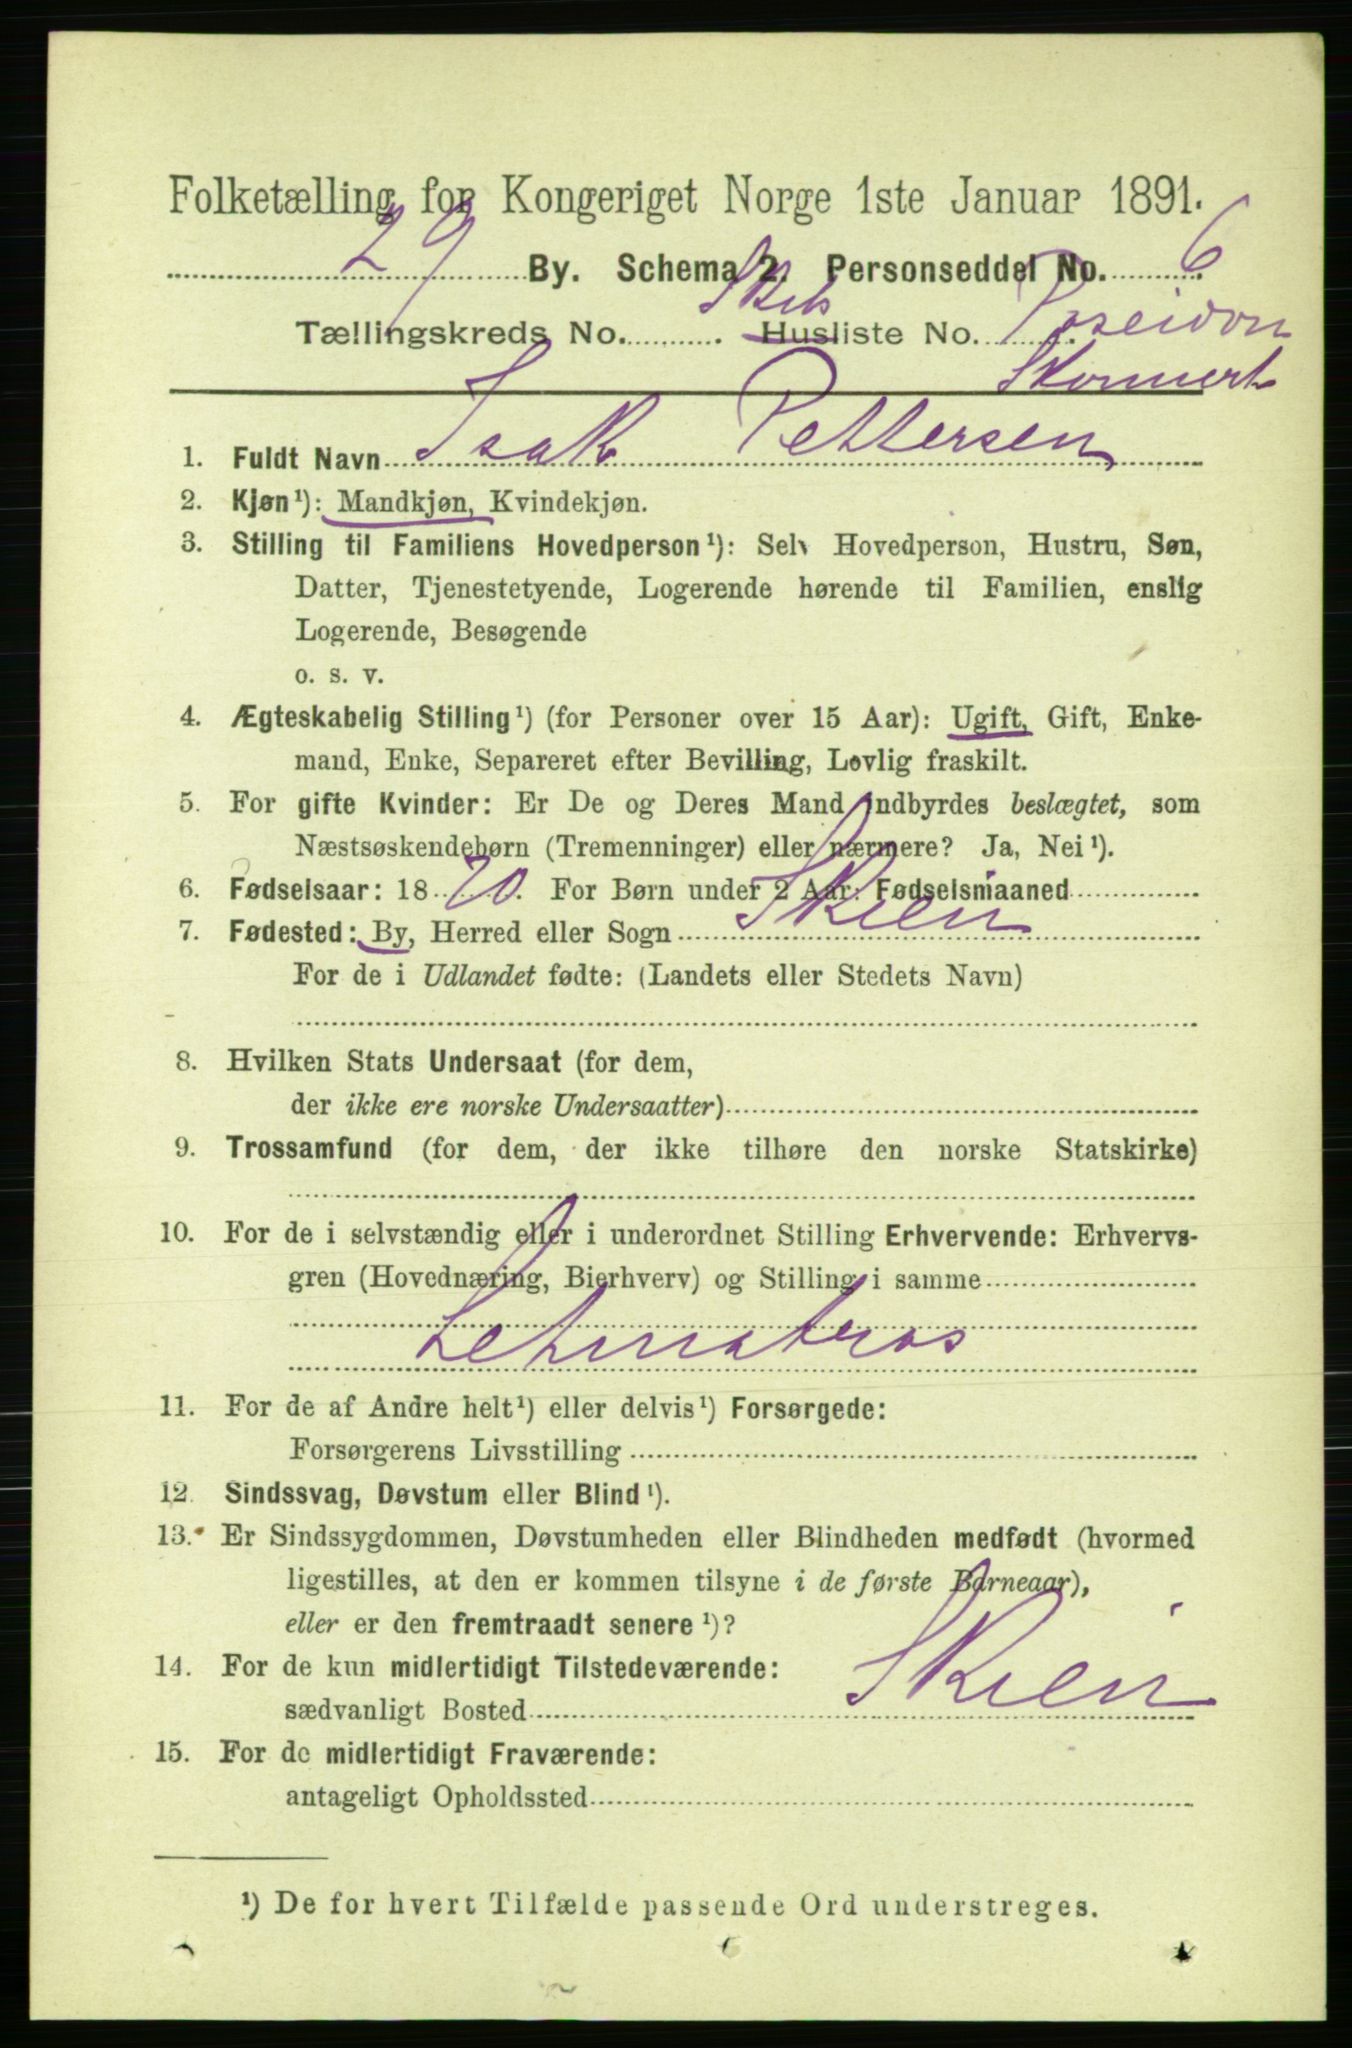 Folketælling for Kongeriget Norge 1ste Januar 1891.
29 By. Schema 2. Personseddel No. 6
Tællingskreds No. Skibs Husliste No. Poseidon
Skonnert
1. Fuldt Navn Isak Pettersen
2. Kjøn¹): Mandkjøn, Kvindekjøn.
3. Stilling til Familiens Hovedperson¹): Selv Hovedperson, Hustru, Søn,
Datter, Tjenestetyende, Logerende hørende til Familien, enslig
Logerende, Besøgende
o. s. v.
4. Ægteskabelig Stilling¹) (for Personer over 15 Aar): Ugift, Gift, Enke-
mand, Enke, Separeret efter Bevilling, Lovlig fraskilt.
5. For gifte Kvinder: Er De og Deres Mand indbyrdes beslægtet, som
Næstsøskendebørn (Tremenninger) eller nærmere? Ja, Nei¹).
6. Fødselsaar: 1870. For Børn under 2 Aar: Fødselsmaaned
7. Fødested: By, Herred eller Sogn Skien
For de i Udlandet fødte: (Landets eller Stedets Navn)
8. Hvilken Stats Undersaat (for dem,
der ikke ere norske Undersaatter)
9. Trossamfund (for dem, der ikke tilhøre den norske Statskirke)
10. For de i selvstændig eller i underordnet Stilling Erhvervende: Erhvervs-
gren (Hovednæring, Bierhverv) og Stilling i samme
Letmatros
11. For de af Andre helt¹) eller delvis¹) Forsørgede:
Forsørgerens Livsstilling
12. Sindssvag, Døvstum eller Blind¹).
13. Er Sindssygdommen, Døvstumheden eller Blindheden medfødt (hvormed
ligestilles, at den er kommen tilsyne i de første Barneaar),
eller er den fremtraadt senere¹)?
14. For de kun midlertidigt Tilstedeværende:
sædvanligt Bosted Skien
15. For de midlertidigt Fraværende:
antageligt Opholdssted
¹) De for hvert Tilfælde passende Ord understreges.